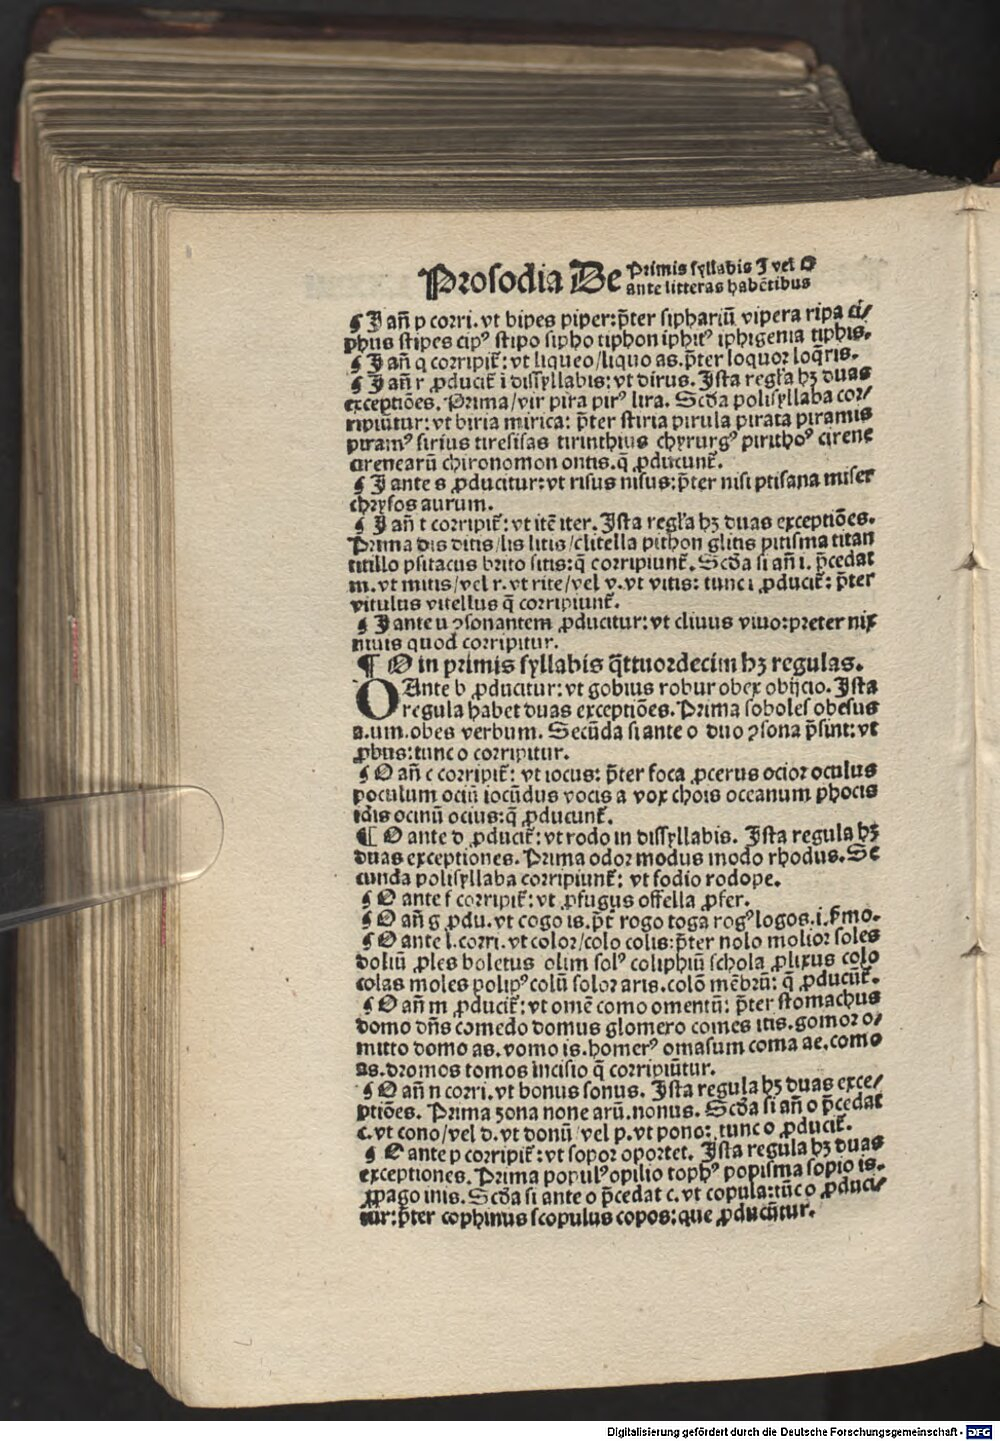 Prosodia De Primis syllabis I vel O
ante litteras habētibus
¶ I añ p corri. vt bipes piper: p̄ter siphariū vipera ripa ci/
phus stipes cipꝰ stipo sipho tiphon iphitꝰ iphigenia tiphis.
¶ I añ q corripit̄: vt liqueo/liquo as. p̄ter loquor loq̄ris.
¶ I añ r ꝓducit̄ i dissyllabis: vt dirus. Ista regl'a hꝫ duas
exceptiões. Prima/vir pira pirꝰ lira. Scđa polisyllaba cor/
ripiūtur: vt biria mirica: p̄ter stiria pirula pirata piramis
piramꝰ sirius tiresisas tirinthius chyrurgꝰ pirithoꝰ cirene
cirenearū chironomon ontis. q̄ ꝓducunt̄.
¶ I ante s ꝓducitur: vt risus nisus: p̄ter nisi ptisana miser
chrysos aurum.
¶ I añ t corripit̄: vt itē iter. Ista regl'a hꝫ duas exceptiões.
Prima dis ditis/lis litis/clitella pithon glitis pitisma titan
titillo psitacus brito sitis: q̄ corripiunt̄. Scđa si añ i. p̄cedat
m. vt mitis/vel r. vt rite/vel v. vt vitis: tunc i ꝓducit̄: p̄ter
vitulus vitellus q̄ corripiunt̄.
¶ I ante u ↄsonantem ꝓducitur: vt cliuus viuo: preter nix
niuis quod corripitur.
¶ O in primis syllabis q̄ttuordecim hꝫ regulas.
OAnte b ꝓducitur: vt gobius robur obex obijcio. Ista
regula habet duas exceptiões. Prima soboles obesus
a.um. obes verbum. Secūda si ante o duo ↄsona p̄sint: vt
ꝓbus: tunc o corripitur.
¶ O añ c corripit̄: vt iocus: p̄ter foca ꝓcerus ocior oculus
poculum ociū iocūdus vocis a vox chois oceanum phocis
idis ocinū ocius: q̄ ꝓducunt̄.
¶ O ante d ꝓducit̄: vt rodo in dissyllabis. Ista regula hꝫ
duas exceptiones. Prima odor modus modo rhodus. Se
cunda polisyllaba corripiunt̄: vt fodio rodope.
¶ O ante f corripit̄: vt ꝓfugus offella ꝓfer.
¶ O añ g ꝓdu. vt cogo is. p̄t rogo toga rogꝰ logos. i. s̄mo.
¶ O ante l. corri. vt color/colo colis: p̄ter nolo molior soles
doliū ꝓles boletus olim solꝰ coliphiū schola ꝓlixus colo
colas moles polipꝰ colū solor aris. colō mēbrū: q̄ ꝓducūt̄.
¶ O añ m ꝓducit̄: vt omē como omentū: p̄ter stomachus
domo dñs comedo domus glomero comes itis. gomor o/
mitto domo as. vomo is. homerꝰ omasum coma ae. como
as. dromos tomos incisio q̄ corripiūtur.
¶ O añ n corri. vt bonus sonus. Ista regula hꝫ duas exce/
ptiões. Prima zona none arū. nonus. Scđa si añ o p̄cedat
c. vt cono/vel d. vt donū/vel p. vt pono: tunc o ꝓducit̄.
¶ O ante p corripit̄: vt sopor oportet. Ista regula hꝫ duas
exceptiones. Prima populꝰ opilio tophꝰ popisma sopio is.
ꝓpago inis. Scđa si ante o p̄cedat c. vt copula: tūc o ꝓduci/
tur: p̄ter cophinus scopulus copos: que ꝓducūtur.
Digitalisierung gefördert durch die Deutsche Forschungsgemeinschaft - DFG